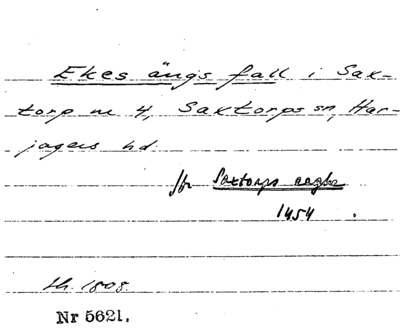 Ekes ängs fall i Sax-
torp nr 4, Saxtorps sn, Har-
jagers hd.
Saxtorps
1454.
th. 1808.
Nr 5621.